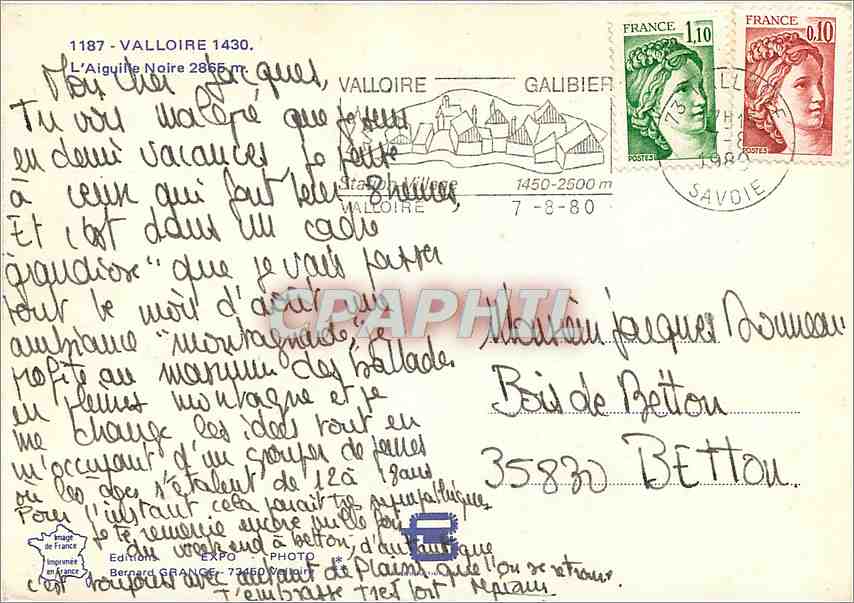 1187 - VALLOIRE 1430.
L'Aiguille Noire 2865 m.
Mon cher Jacques,
Tu vois malgré que je sois
en demi vacances, je pense
à ceux qui font leur 8 heures,
Et c'est dans un cadre
grandiose" que je vais passer
tout le mois d'août, une
ambiance "montagnarde, je
profite au maximum des ballades
en pleines montagne et je
me change les idées tout en
m'occupant d'un groupe de jeunes
où les âges s'étalent de 12 à 18 ans
Pour l'instant cela parait très sympathique
je te remercie encore mille fois
du week end à betton, d'autant que
c'est toujours avec autant de plaisir que l'on se retrouve.
T'embrasse très fort
VALLOIRE GALIBIER
Station Village 1450-2500 m
VALLOIRE 7 -8-80
FRANCE
1,10
POSTES
FRANCE
0,10
POSTES
73 VALLOIRE
1980
SAVOIE
CPARHTI
Monsieur Jacques Bonneau
Bois de Betton
35830 BETTON.
Image
de France
Imprimée
en France
Editions EXPO PHOTO
Bernard GRANGE - 73450 Valloire